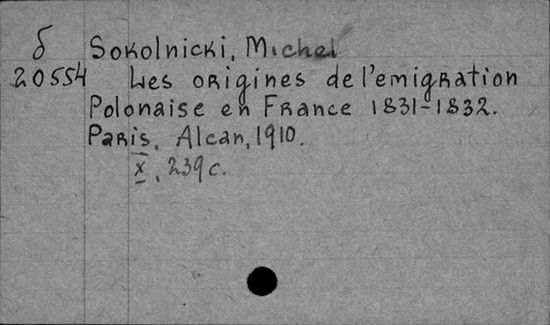 б Sokolnicki, Michel
20554 Les origines de l'emigration
Polonaise en France 1831-1832.
Paris, Alcan, 1910.
X, 239 c.